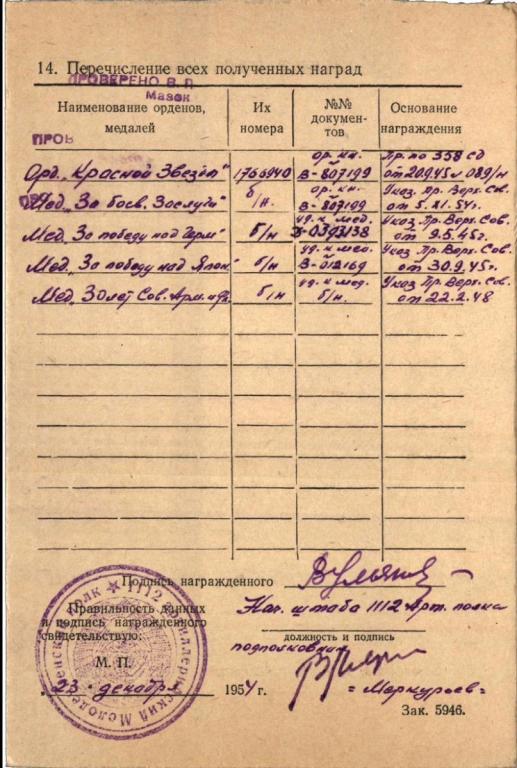 14. Перечисление всех полученных наград
ПРОВЕРЕНО В. П.
Мазок
Наименование орденов, медалей
Их номера
№№ докумен-тов
Основание награждения
ПРОВ
Орд. "Красной Звезды" 1766940 ор. кн. В-807199 Пр. по 358 сд от 20.9.45г. 089/н
Мед. "За боев. Заслуги" б/н. ор. кн. В-807199 Указ. Пр. Верх. Сов. от 5.XI.54г.
Мед. "За победу над Герм" б/н уд. к мед. 0393138 Указ Пр. Верх. Сов. от 9.5.45г.
Мед. "За победу над Япон." б/н уд. к мед. В-012169 Указ Пр. Верх. Сов. от 30.9.45г.
Мед. 30 лет Сов. Арм. и Фл. б/н уд. к мед. б/н. Указ Пр. Верх. Сов. от 22.2.48
Подпись награжденного
Правильность данных
и подпись награжденного
свидетельствую:
Нач. штаба 1112 Арт. полка
должность и подпись
подполковник
М. П.
"23" декабря 1954 г.
= Меркурьев =
Зак. 5946.